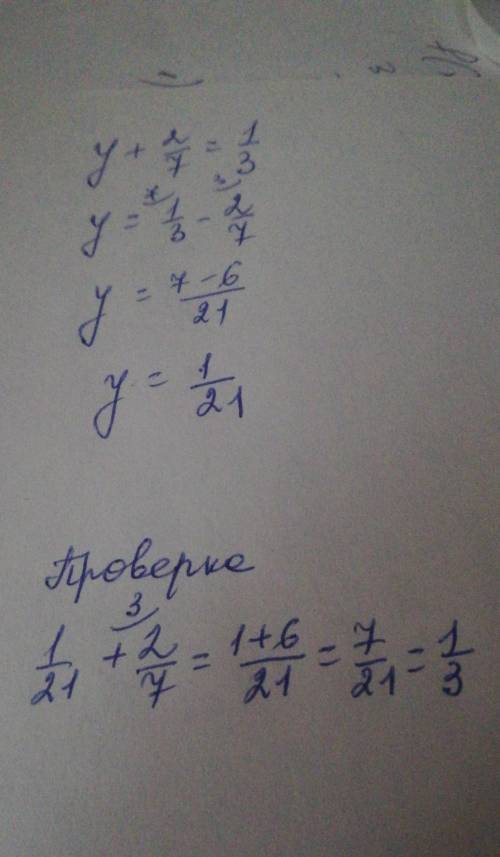 y + 2/7 = 1/3
y = 1/3 - 2/7
y = 7-6/21
y = 1/21
Проверка
3
1/21 + 2/7 = 1+6/21 = 7/21 = 1/3